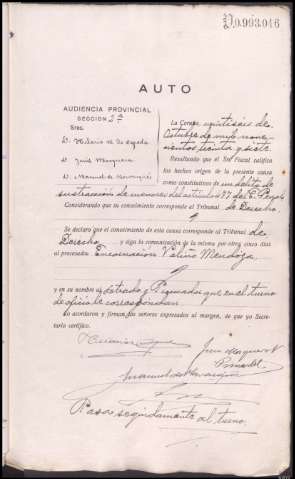 0.993,046
AUTO
AUDIENCIA PROVINCIAL
SECCION 2ª
Sres.
D. Hilario
D. José Marquera
D. Manuel de
La Coruña veintiseis de
Octubre de mil nove-
cientos treinta y siete
Resultando que el Sr. Fiscal califica
los hechos origen de la presente causa
como constitutivos de un delito de
sustracción de menores del artículo C. Penal
Considerando que su conocimiento corresponde al Tribunal de Derecho
Se declara que el conocimiento de esta causa corresponde al Tribunal de
Derecho y siga la comunicación de la misma por otros cinco días
al procesado Encarnacion Patiño Mendoza
y en su nombre al Letrado y Procurador que en el turno
de oficio le correspondan
Lo acordaron y firman los señores expresados al margen, de que yo Secre-
tario certifico.
Pasa seguidamente al turno.